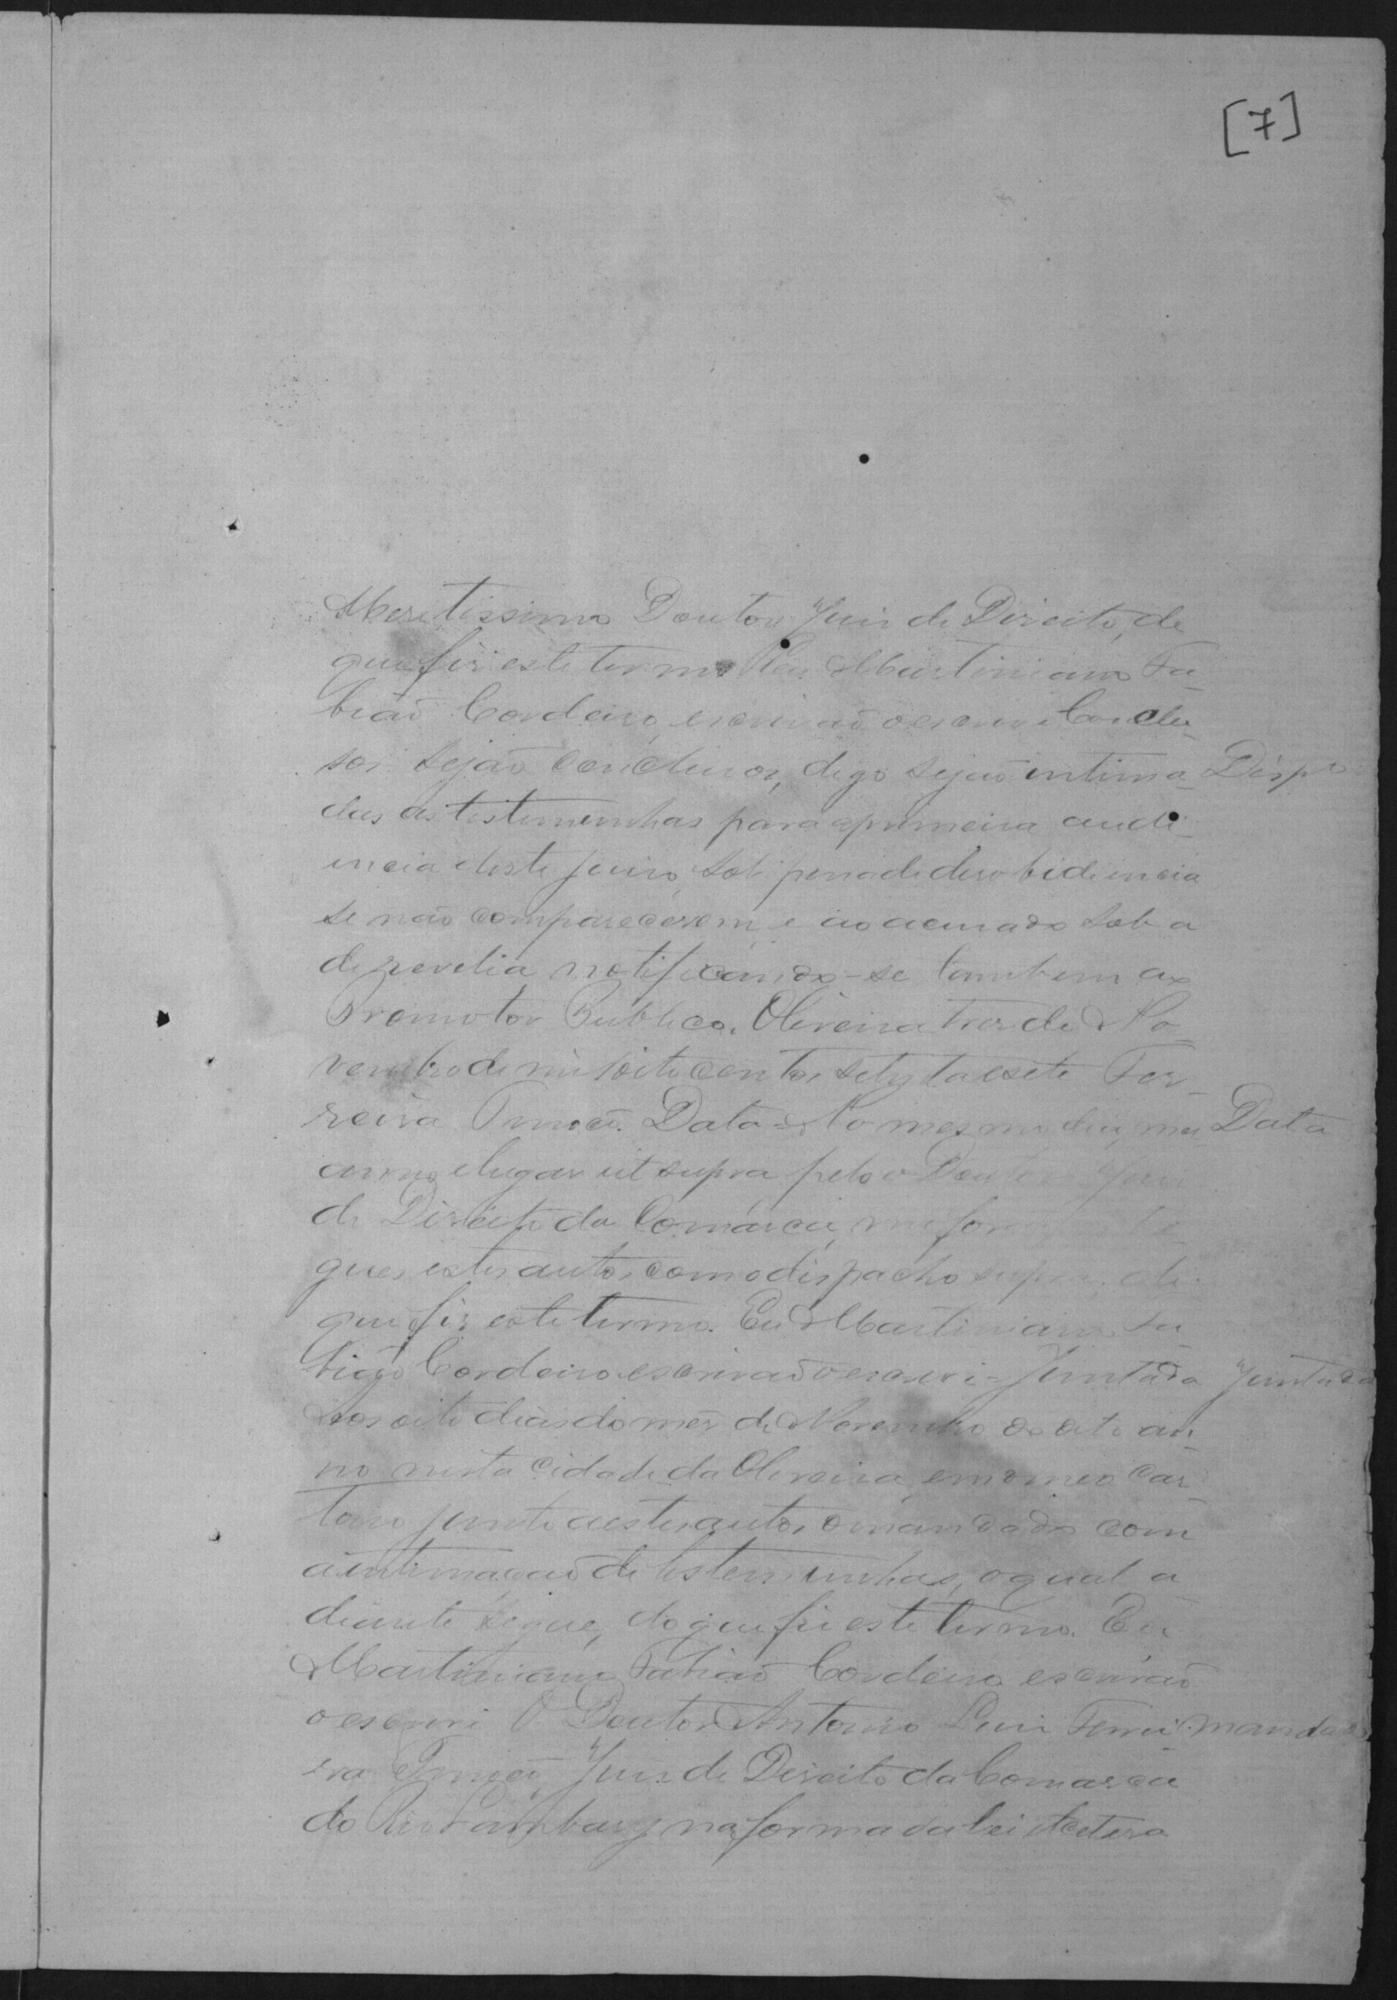 [7]
Meretissimo Doutor Juiz de Direito, de
que fiz este termo Eu Martiniano Fa-
bião Cordeiro, escrivão o escrevi Conclu-
sos. Sejão concluzos, digo sejão intima- Disp.o
das as testemunhas para a primeira audi-
encia deste juizo, sob pena de desobidiencia
se não comparecerem, e ao acusado sob a
de revelia notificando-se tambem ao
Promotor Publico. Oliveira tres de No-
vembro de mil oito centos setenta e sete Fer-
reira Data = No mesmo dia, mez Data
anno e lugar ut supra pelo o Doutor Juiz
de Direito da Comarca, me for
gues estes autos com o dispacho supra, de
que fiz este termo. Eu Martiniano Fa-
bião Cordeiro escrivão o escrevi = Juntada Juntada
Aos oito dias do mez de Novembro do dito an-
no nesta cidade da Oliveira, em o meo car-
torio junto a estes autos o mandado com
a intimação de testemunhas, o qual a
diante segue, do que fiz este termo. Eu
Martiniano Fabião Cordeiro escrivão
o escrevi O Doutor Antonio Luiz Ferrei- Manda
ra Juiz de Direito da Comarca
do Rio na forma da lei etcetera